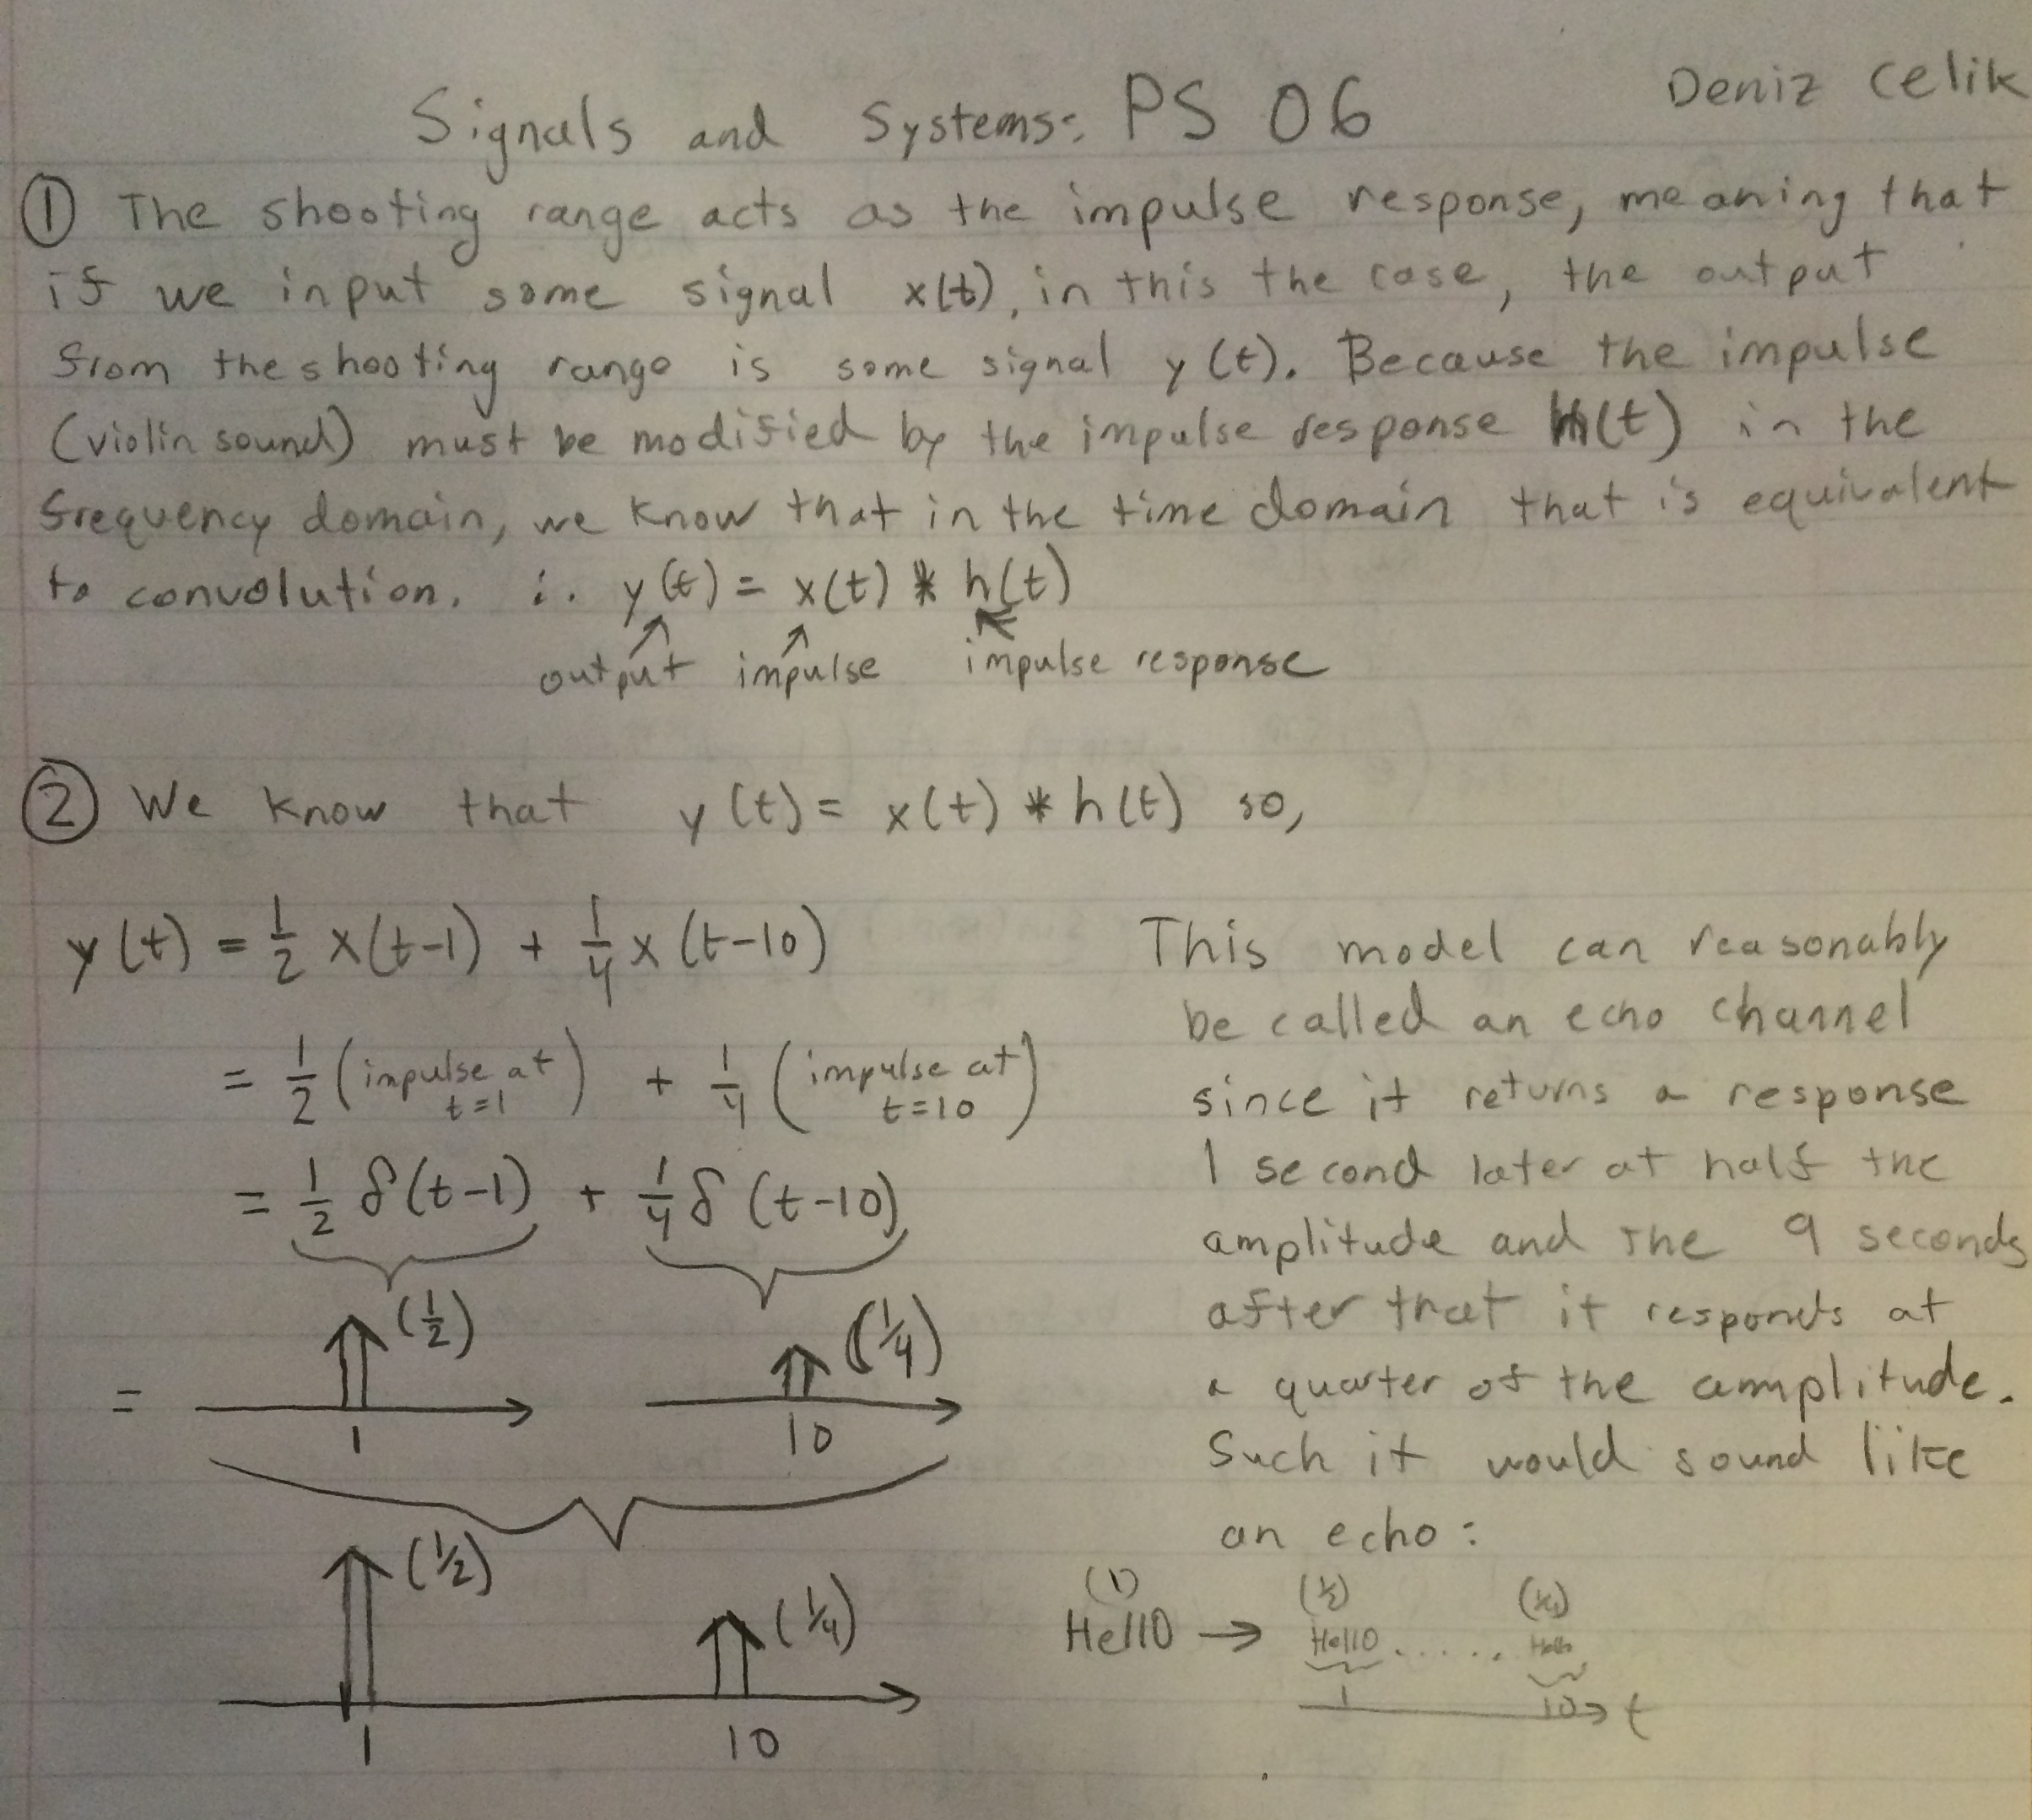 Signals and Systems: PS 06
Deniz Celik
① The shooting range acts as the impulse response, meaning that
if we input some signal x(t), in this the case, the output
from the shooting range is some signal y(t). Because the impulse
(violin sound) must be modified by the impulse response h(t) in the
frequency domain, we know that in the time domain that is equivalent
to convolution. ∴ y(t) = x(t) * h(t)
output impulse impulse response
② We know that y(t) = x(t) * h(t) so,
y(t) = 1/2 x(t-1) + 1/4 x(t-10)
= 1/2 (impulse at t=1) + 1/4 (impulse at t=10)
= 1/2 δ(t-1) + 1/4 δ(t-10)
(1/2) (1/4)
=
1 10
(1/2) (1/4)
1 10
This model can reasonably
be called an echo channel
since it returns a response
1 second later at half the
amplitude and the 9 seconds
after that it responds at
a quarter of the amplitude.
Such it would sound like
an echo:
(1) (1/2) (1/4)
Hello → Hello ...... Hello
1 10 t